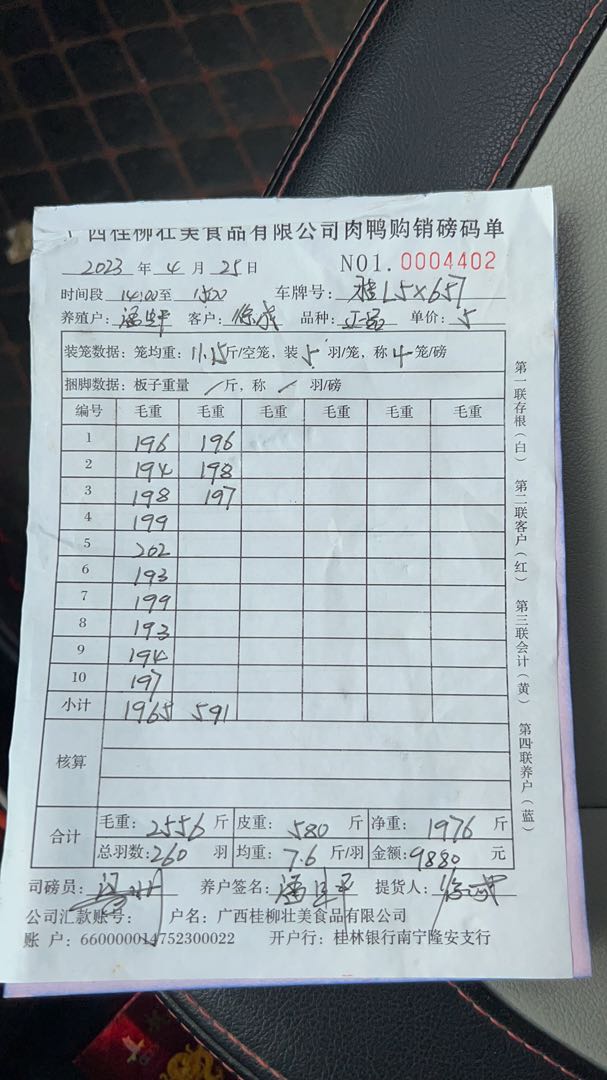 广西桂柳壮美食品有限公司肉鸭购销磅码单
2023 年 4 月 25 日 NO1.0004402
时间段 14:00 至 1500 车牌号: 桂L5X657
养殖户: 客户: 徐成 品种: 单价: 5
装笼数据: 笼均重: 11.15 斤/空笼, 装 5 羽/笼, 称 4 笼/磅
捆脚数据: 板子重量 / 斤, 称 / 羽/磅
编号 毛重 毛重 毛重 毛重 毛重 毛重
1 196 196
2 194 198
3 198 197
4 199
5 202
6 193
7 199
8 193
9 194
10 197
小计 1965 591
核算
合计 毛重: 2556 斤 皮重: 580 斤 净重: 1976 斤
总羽数: 260 羽 均重: 7.6 斤/羽 金额: 9880 元
司磅员: 养户签名: 提货人:
公司汇款账号: 户名: 广西桂柳壮美食品有限公司
账 户: 660000014752300022 开户行: 桂林银行南宁隆安支行
第一联存根(白) 第二联客户(红) 第三联会计(黄) 第四联养户(蓝)